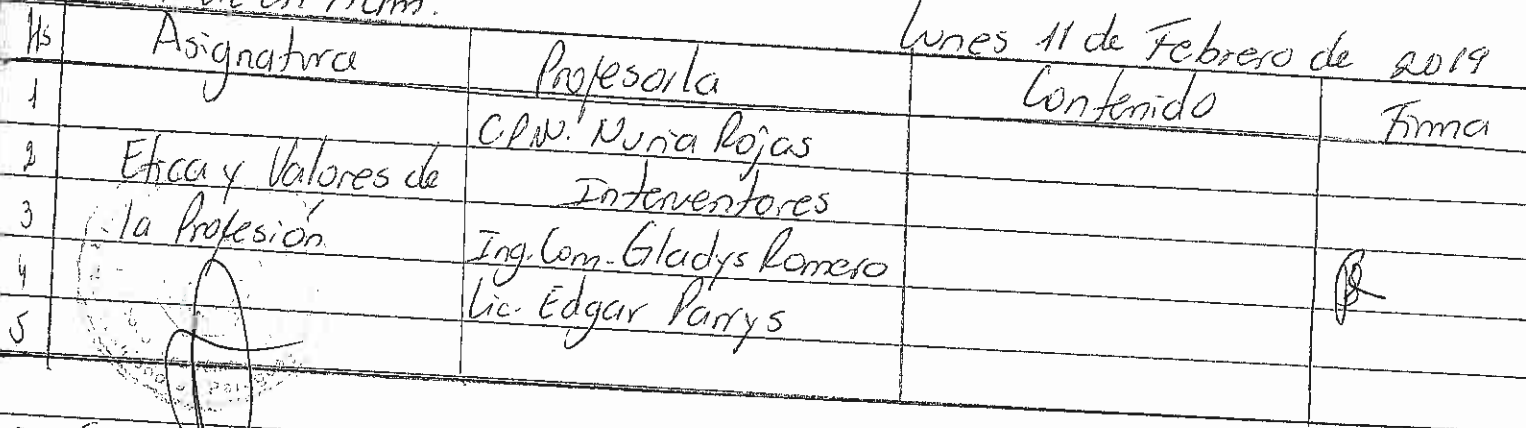 Lunes 11 de Febrero de 2019
Hs Asignatura Profesor/a Contenido Firma
1 C.P.N. Nuria Rojas
2 Etica y Valores de Interventores
3 la Profesión Ing. Com. Gladys Romero
4 Lic. Edgar Parrys
5